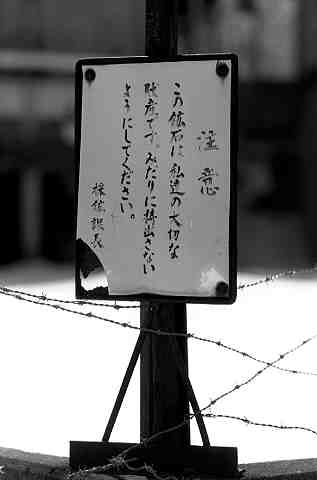 注意
この鉱石は私達の大切な
財産です。みだりに持出さない
ようにしてください。
採鉱課長